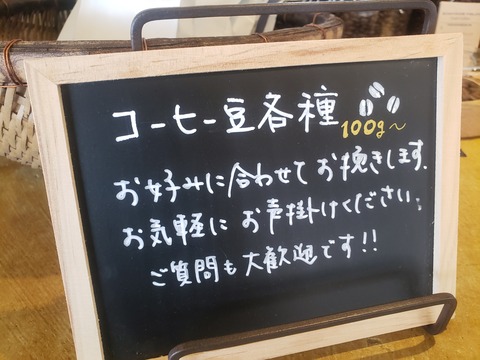 コーヒー豆各種
100g～
お好みに合わせてお挽きします.
お気軽にお声掛けください.
ご質問も大歓迎です!!